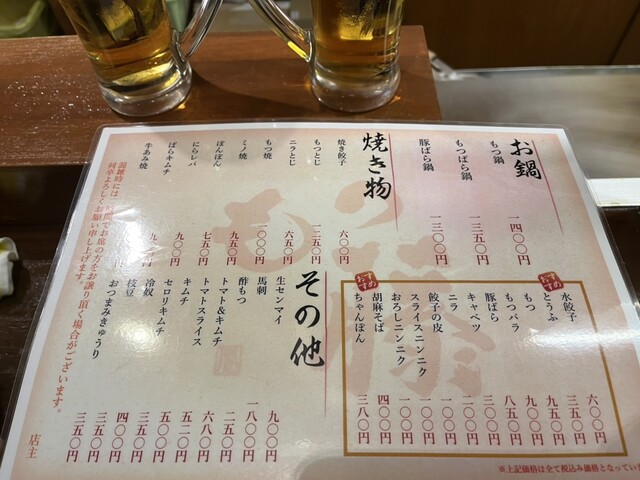 お鍋
もつ鍋 一四〇〇円
もつばら鍋 一三五〇円
豚ばら鍋 一三〇〇円
おすすめ
水餃子 六〇〇円
とうふ 三五〇円
もつ 九五〇円
もつバラ 九五〇円
豚ばら 八五〇円
キャベツ 一〇〇円
ニラ 一〇〇円
餃子の皮 一〇〇円
スライスニンニク 一〇〇円
おろしニンニク 一〇〇円
胡麻そば 四〇〇円
ちゃんぽん 三八〇円
焼き物
焼き餃子 六〇〇円
もつとじ 一二五〇円
ニラとじ 六五〇円
もつ焼 一〇〇〇円
ミノ焼 九五〇円
ぽんぽん 七五〇円
にらレバ 九〇〇円
ばらキムチ
牛あみ焼
その他
生センマイ 九〇〇円
馬刺 一八〇〇円
酢もつ 二五〇円
トマト&キムチ 六八〇円
トマトスライス 五二〇円
キムチ 五〇〇円
セロリキムチ 三五〇円
冷奴 四〇〇円
枝豆 三五〇円
おつまみきゅうり 三五〇円
混雑時には二時間でお席の方をお譲り頂く場合がございます。
何卒よろしくお願い申し上げます。
店主
※上記価格は全て税込み価格となってい